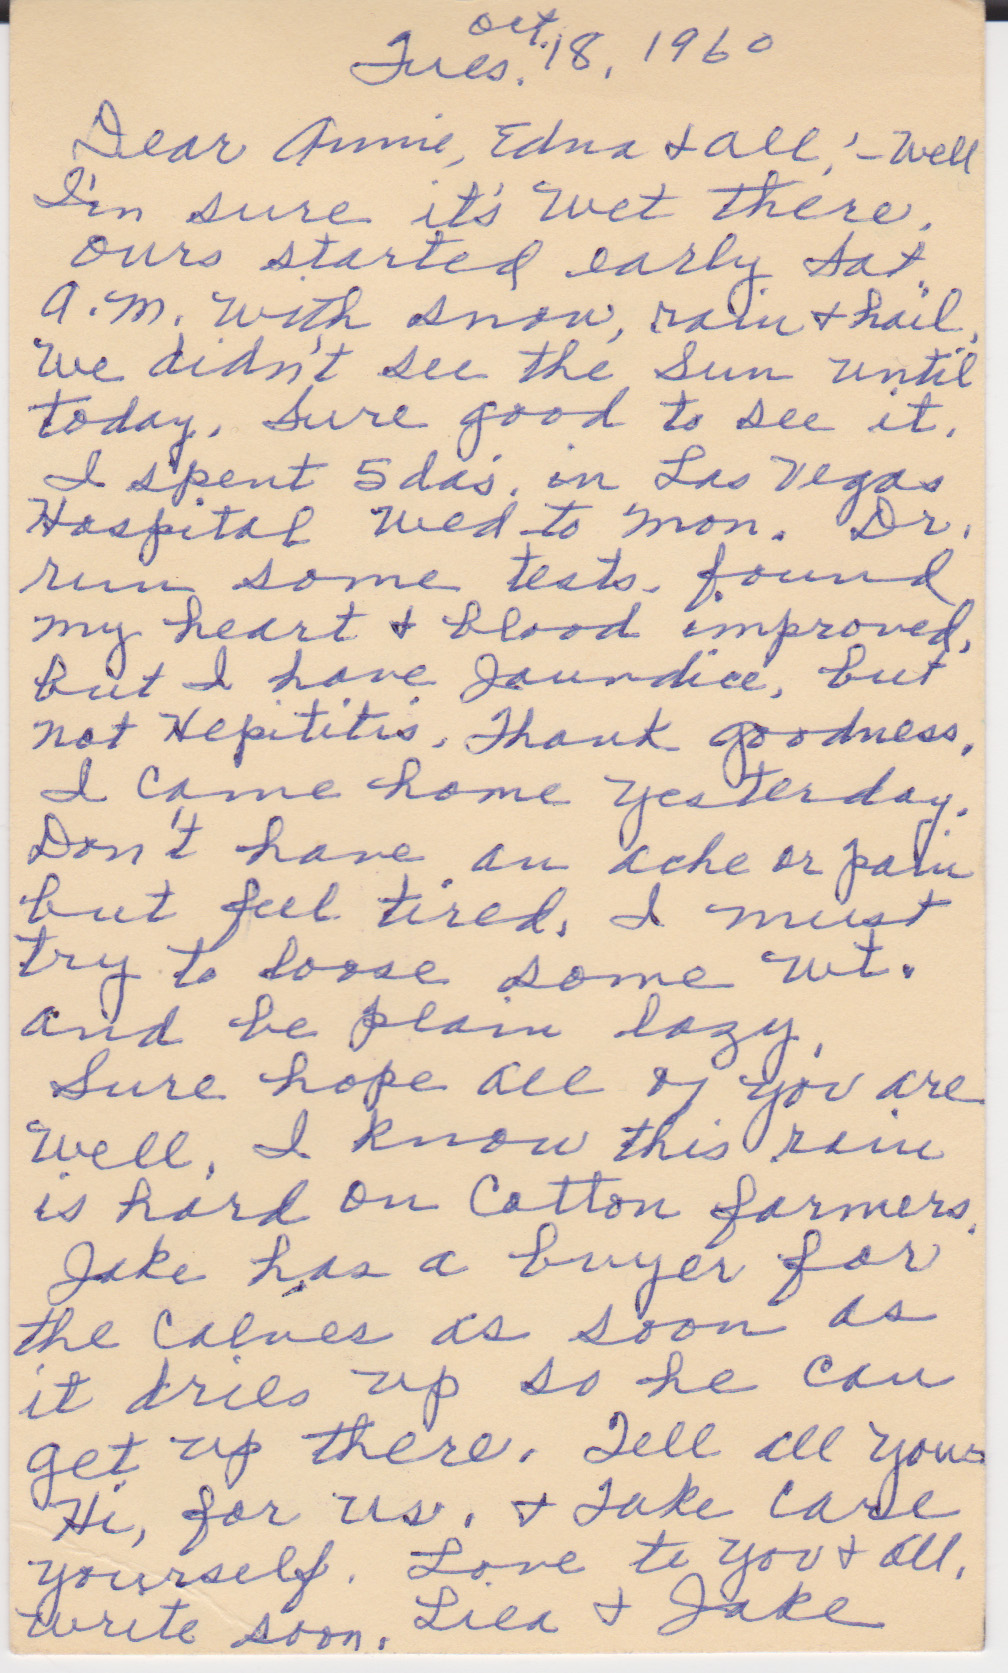 Oct.
Tues. 18, 1960
Dear Annie, Edna & all, - Well
I'm sure it's wet there.
Ours started early Sat.
A.M. with snow, rain & hail.
We didn't see the Sun until
today. Sure good to see it.
I spent 5 da's. in Las Vegas
Hospital Wed to Mon. Dr.
run some tests. found
my heart & blood improved,
but I have Jaundice, but
not Hepititis. Thank goodness.
I came home yesterday.
Don't have an ache or pain
but feel tired. I must
try to loose some wt.
and be plain lazy.
Sure hope all of you are
well. I know this rain
is hard on Cotton farmers.
Jake has a buyer for
the Calves as soon as
it dries up so he can
get up there. Tell all yours
Hi, for us. & Take care
yourself. Love to you & all.
write soon. & Jake